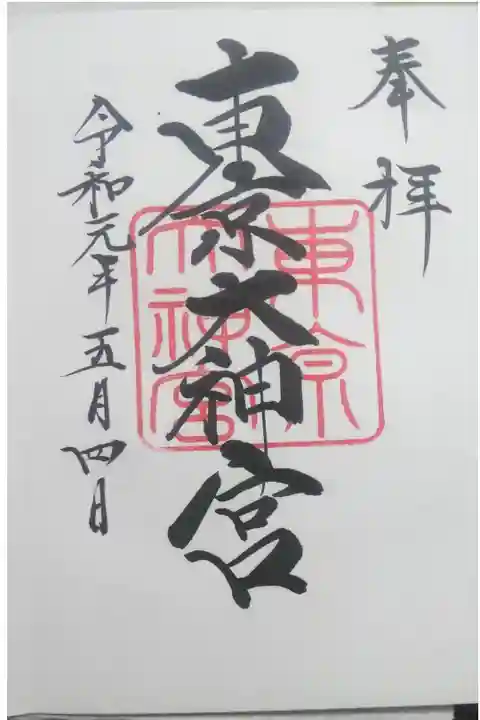 奉拝
東京大神宮
東京
大神宮
令和元年五月四日